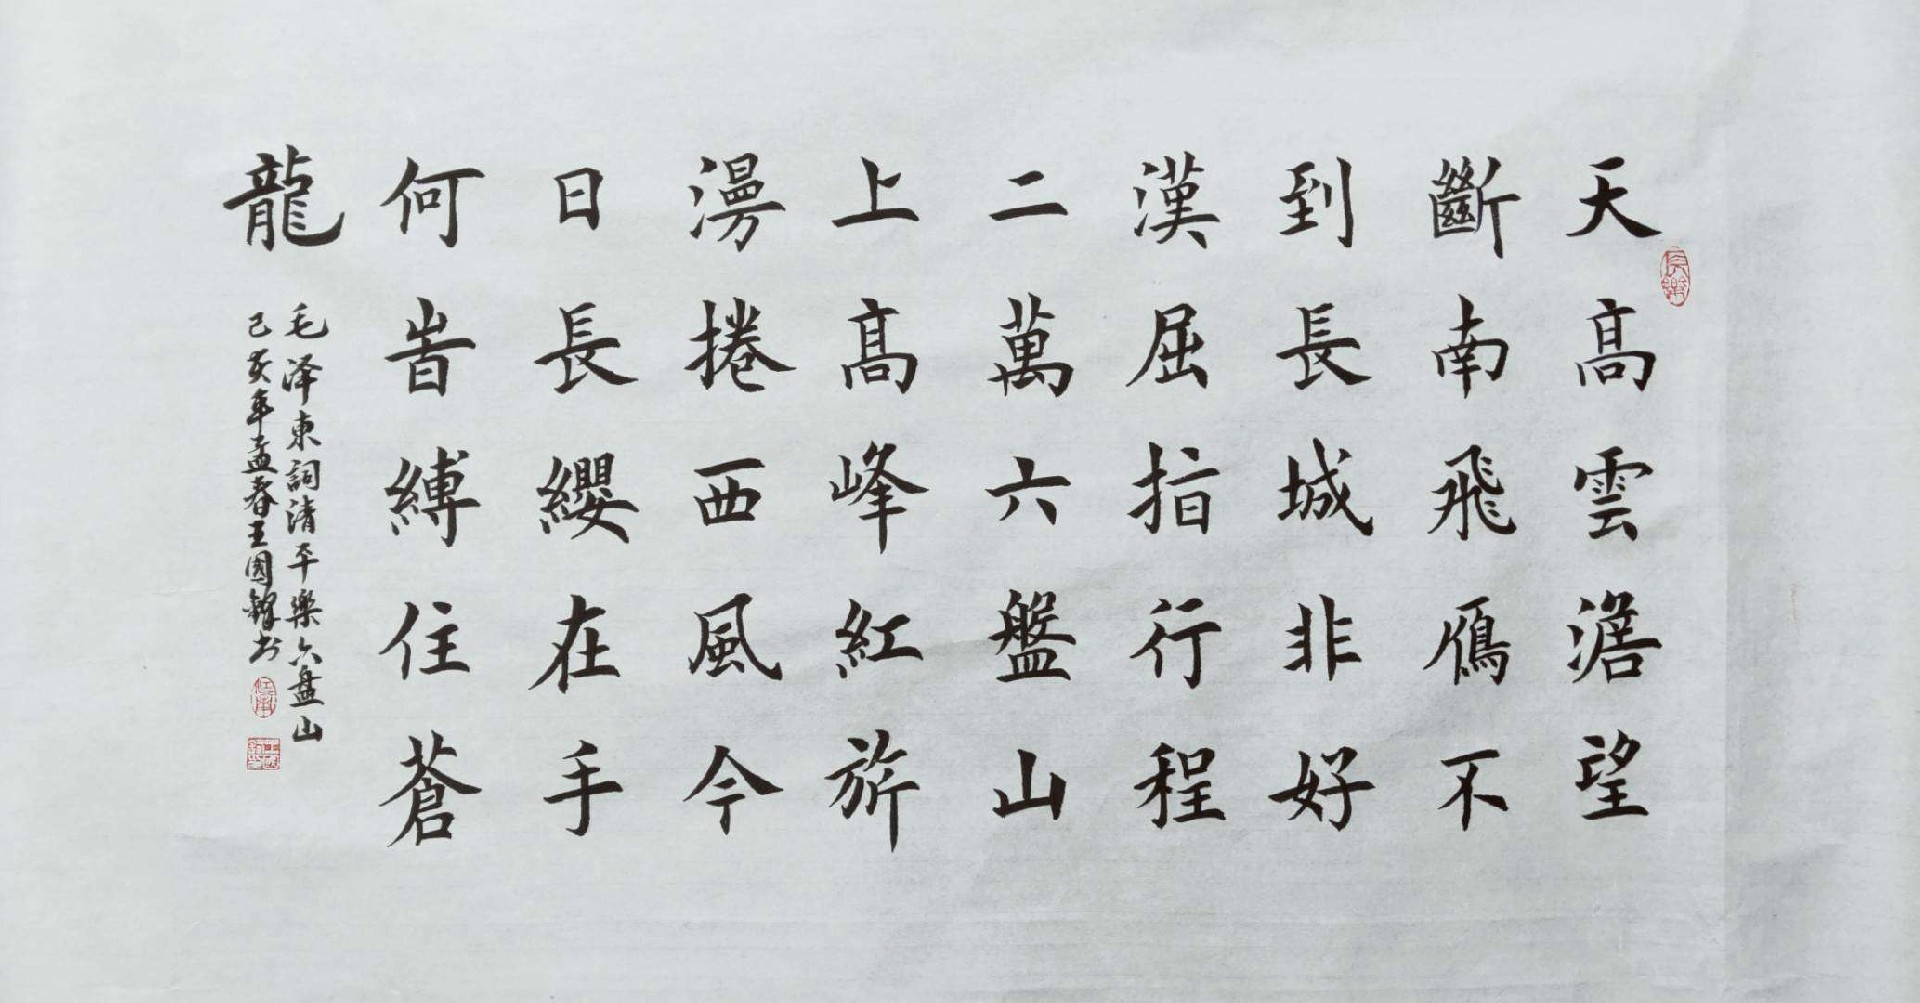 天髙雲澹望
斷南飛鴈不
到長城非好
漢屈指行程
二萬六盤山
上髙峰紅旂
漫捲西風今
日長纓在手
何旹縛住蒼
龍
毛泽東詞清平樂六盘山
己亥年孟春王國鋒书